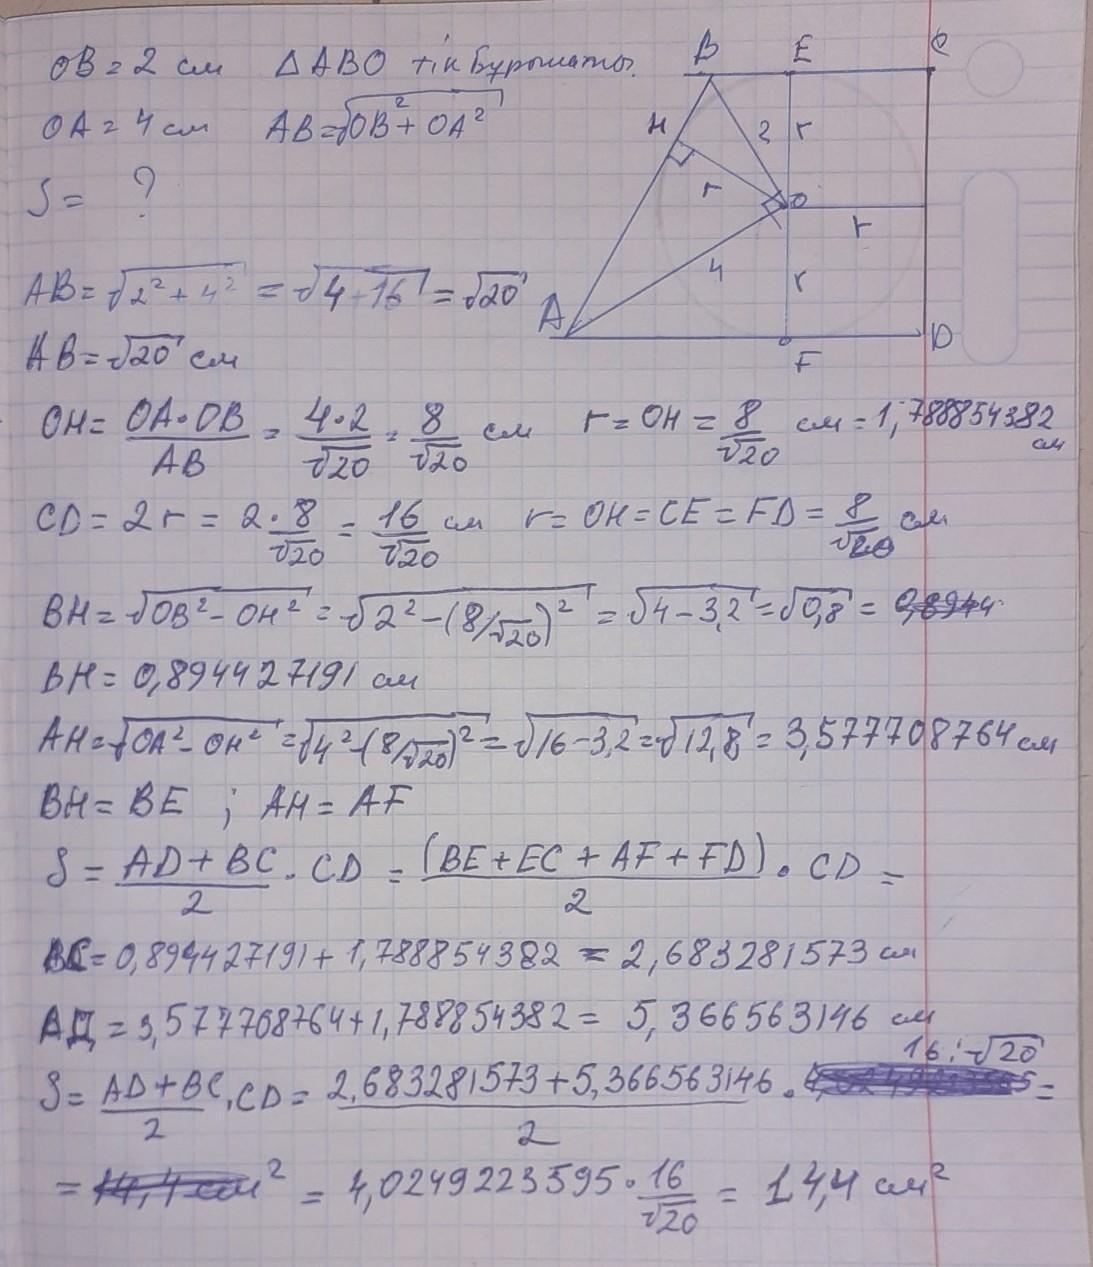 OB = 2 см   ΔABO тік бұрышты.
OA = 4 см   AB = √(OB² + OA²)
S = ?
B E C
H 2 r
r O r
4 r
A F D
AB = √(2² + 4²) = √(4+16) = √20
AB = √20 см
OH = OA·OB/AB = 4·2/√20 = 8/√20 см   r = OH = 8/√20 см = 1,788854382 см
CD = 2r = 2·8/√20 = 16/√20 см   r = OH = CE = FD = 8/√20 см
BH = √(OB² - OH²) = √(2² - (8/√20)²) = √(4 - 3,2) = √0,8 =
BH = 0,894427191 см
AH = √(OA² - OH²) = √(4² - (8/√20)²) = √(16 - 3,2) = √12,8 = 3,577708764 см
BH = BE ; AH = AF
S = (AD + BC)/2 · CD = (BE + EC + AF + FD)/2 · CD =
BC = 0,894427191 + 1,788854382 = 2,683281573 см
АД = 3,577708764 + 1,788854382 = 5,366563146 см
S = (AD + BC)/2 · CD = (2,683281573 + 5,366563146)/2 · 16:√20 =
= 4,0249223595 · 16/√20 = 14,4 см²